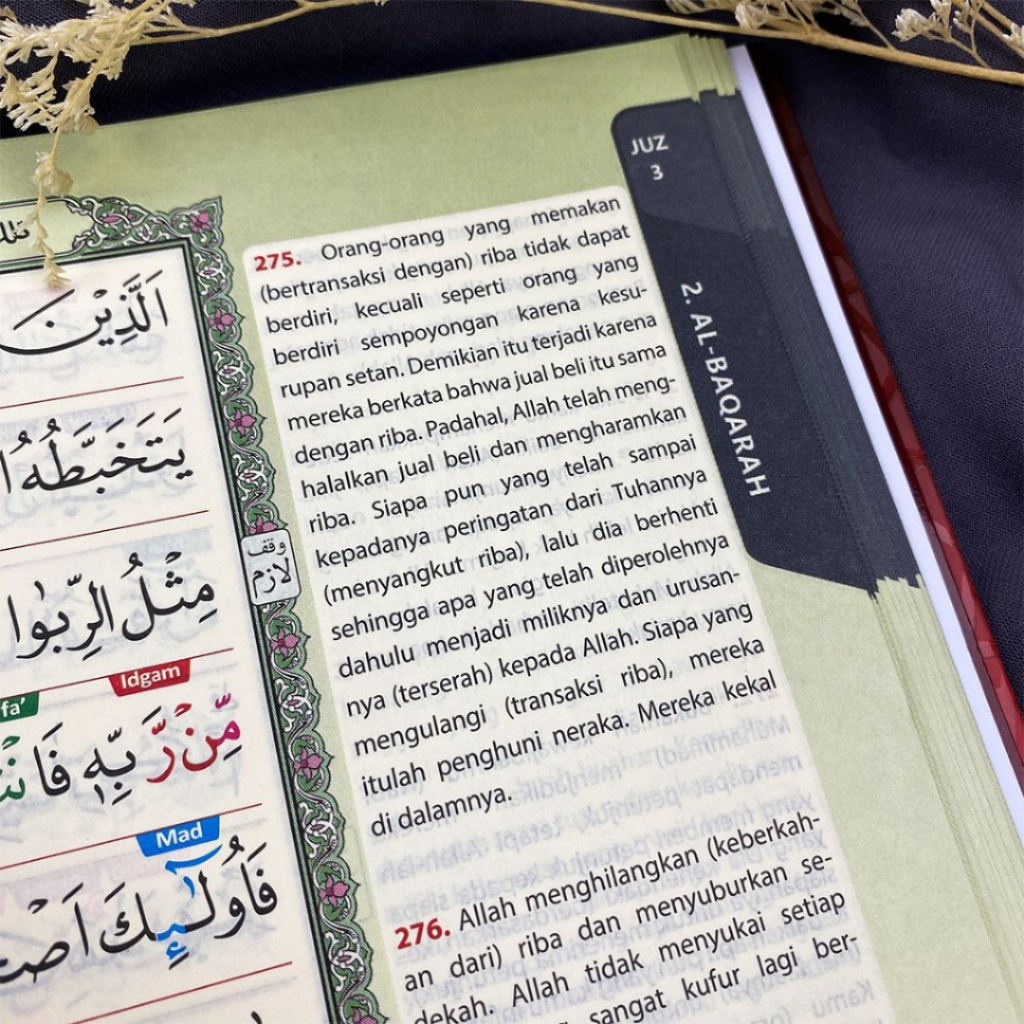 JUZ
3
2. AL-BAQARAH
275. Orang-orang yang memakan
(bertransaksi dengan) riba tidak dapat
berdiri, kecuali seperti orang yang
berdiri sempoyongan karena kesu-
rupan setan. Demikian itu terjadi karena
mereka berkata bahwa jual beli itu sama
dengan riba. Padahal, Allah telah meng-
halalkan jual beli dan mengharamkan
riba. Siapa pun yang telah sampai
kepadanya peringatan dari Tuhannya
(menyangkut riba), lalu dia berhenti
sehingga apa yang telah diperolehnya
dahulu menjadi miliknya dan urusan-
nya (terserah) kepada Allah. Siapa yang
mengulangi (transaksi riba), mereka
itulah penghuni neraka. Mereka kekal
di dalamnya.
276. Allah menghilangkan (keberkah-
an dari) riba dan menyuburkan se-
dekah. Allah tidak menyukai setiap
sangat kufur lagi ber-
اَلَّذِيْنَ
يَتَخَبَّطُهُ
مِثْلُ الرِّبٰوا
وقف
لازم
Idgam
fa'
مِّنْ رَّبِّهٖ فَا
Mad
فَاُولٰۤىِٕكَ